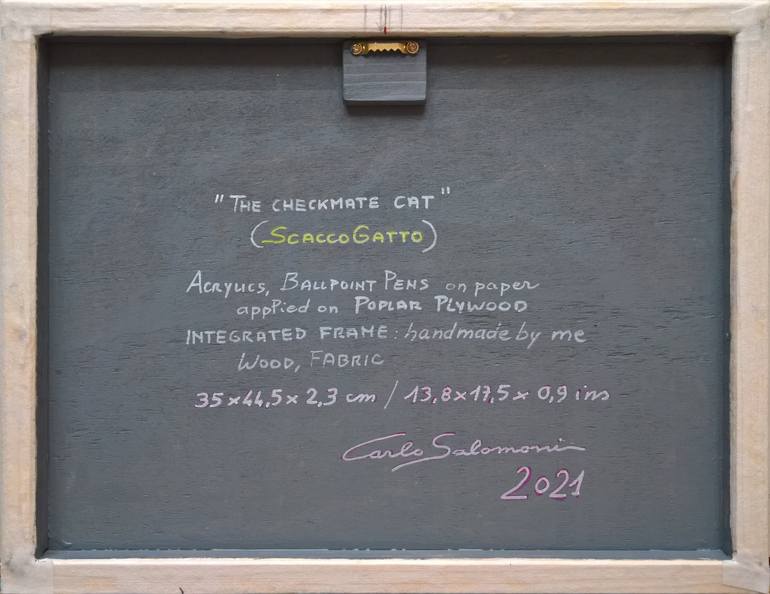 "THE CHECKMATE CAT"
(SCACCOGATTO)
ACRYLICS, BALLPOINT PENS on paper
applied on POPLAR PLYWOOD
INTEGRATED FRAME: handmade by me
WOOD, FABRIC
35x44,5x2,3 cm / 13,8x17,5x0,9 ins
Carlo Salomoni
2021